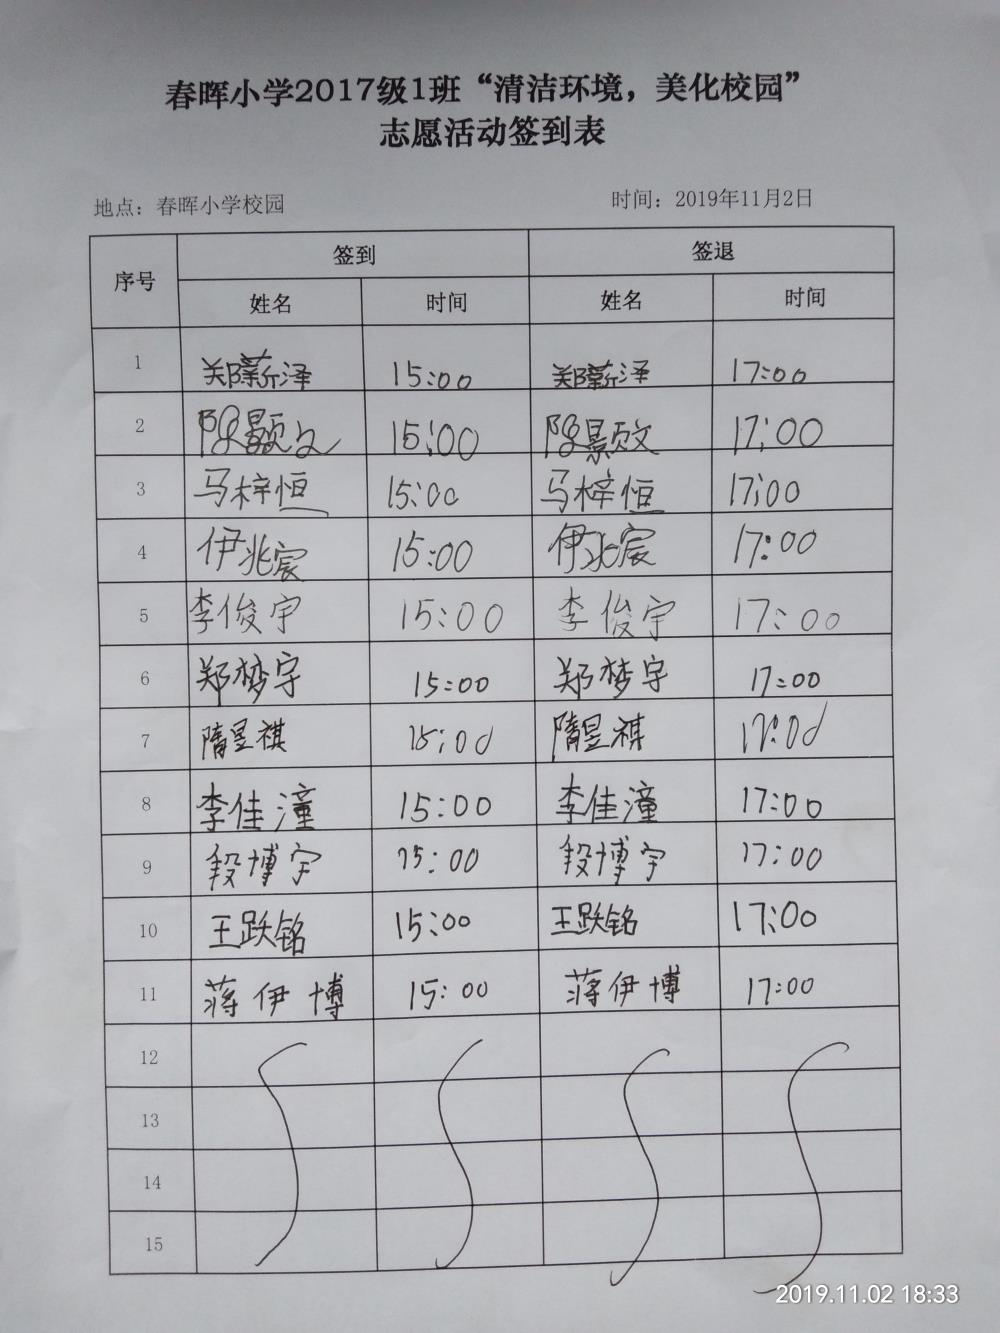 春晖小学2017级1班“清洁环境，美化校园”
志愿活动签到表
地点：春晖小学校园 时间：2019年11月2日
序号 签到 签退
姓名 时间 姓名 时间
1 郑薪泽 15:00 郑薪泽 17:00
2 景文 15:00 景文 17:00
3 马梓恒 15:00 马梓恒 17:00
4 伊兆宸 15:00 伊兆宸 17:00
5 李俊宇 15:00 李俊宇 17:00
6 郑梦宇 15:00 郑梦宇 17:00
7 隋昱祺 15:00 隋昱祺 17:00
8 李佳潼 15:00 李佳潼 17:00
9 段博宇 15:00 段博宇 17:00
10 王跃铭 15:00 王跃铭 17:00
11 蒋伊博 15:00 蒋伊博 17:00
12
13
14
15
2019.11.02 18:33